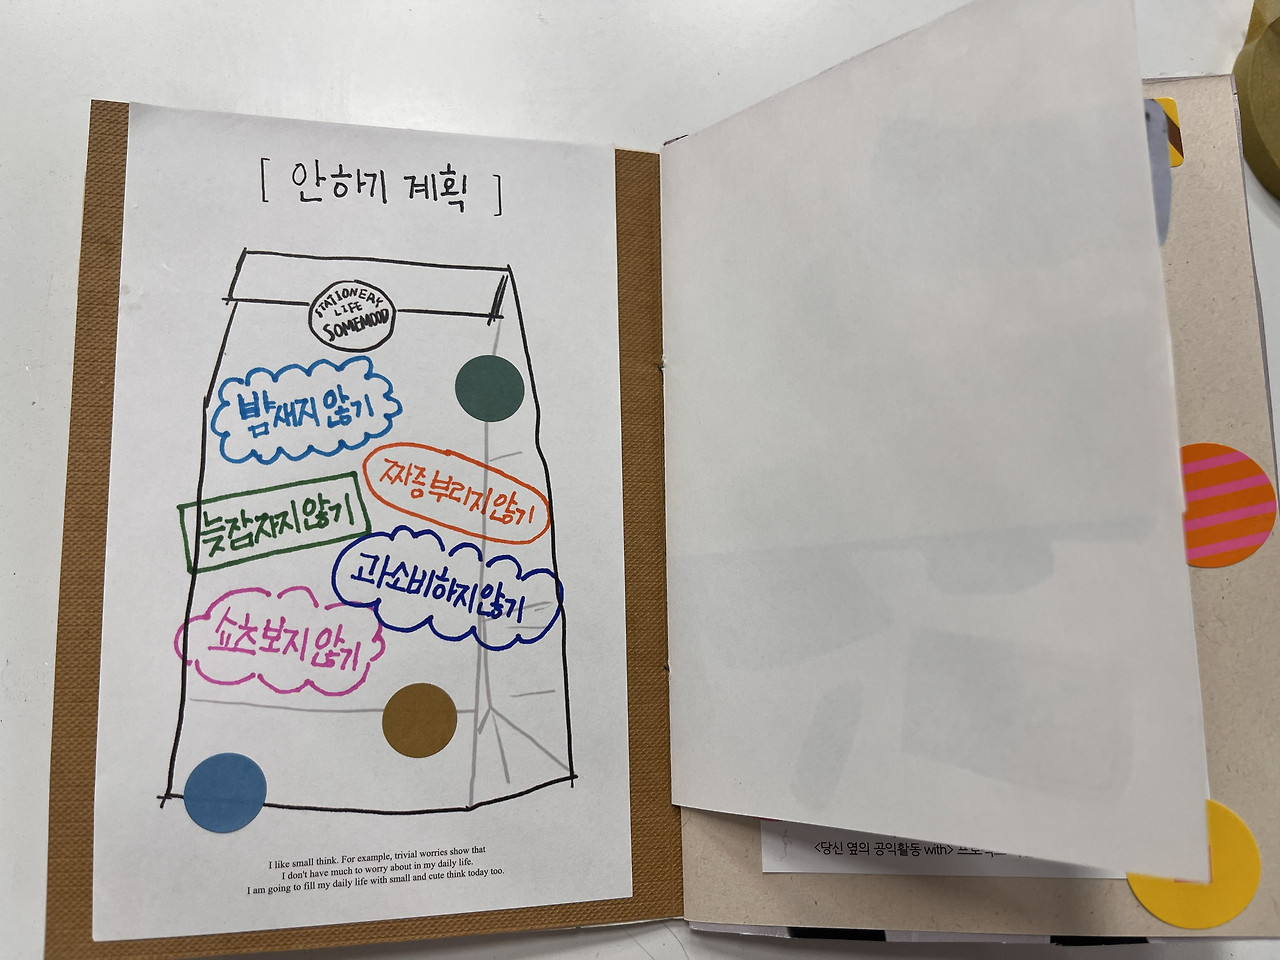 [ 안하기 계획 ]
STATIONERY
LIFE
SOMEMOOD
밤새지 않기
짜증 부리지 않기
늦잠자지 않기
과소비하지 않기
쇼츠 보지 않기
I like small think. For example, trivial worries show that
I don't have much to worry about in my daily life.
I am going to fill my daily life with small and cute think today too.
<당신 옆의 공익활동 with>